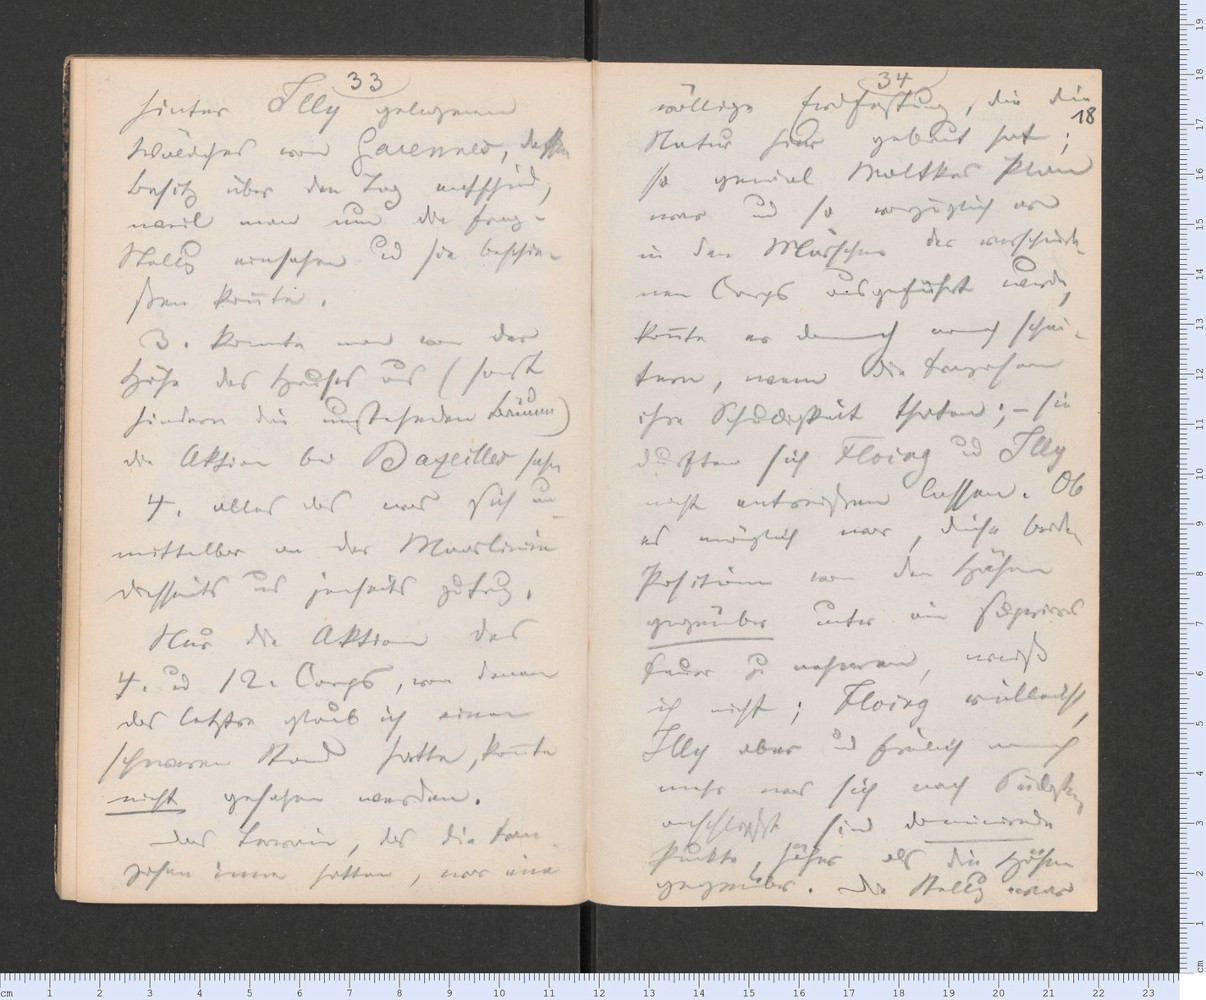 33
hinter Illy gelegenen
Wäldches von Garennes, dessen
Besitz über den Tag entschied,
weil man nun die franz.
Stellg einsehen ud sie beschie-
ßen konte.
3. konnte man von der
Höhe des Hauses aus (sonst
hindern die umstehenden Bäume)
die Aktion bei Bazeilles sehn
4. alles das was sich un-
mittelbar an der Maaslinie
diesseits und jenseits zutrug.
Nur die Aktion des
4. ud 12. Corps, von denen
das letztre glaub ich einen
schweren Stand hatte, konte
nicht gesehen werden.
Das Terrain, das die Fran-
zosen inne hatten, war eine
34
18
völlige Erdfestung, die die
Natur hier gebaut hat;
so genial Moltkes Plan
war ud so vorzüglich er
in den Märschen der verschiede-
nen Corps ausgeführt wurde,
konte er dennoch noch schei-
tern, wenn die Franzosen
ihre Schuldigkeit thaten; – sie
durften sich Floing ud Illy
nicht entreißen lassen. Ob
es möglich war, diese beiden
Positionen von den Höhen
gegenüber unter ein
Feuer zu nehmen, weiß
ich nicht; Floing vielleicht,
Illy aber ud freilich noch
mehr was sich nach Südosten
anschließt sind dominirende
Punkte, höher als die Höhen
gegenüber. Die Stellg war